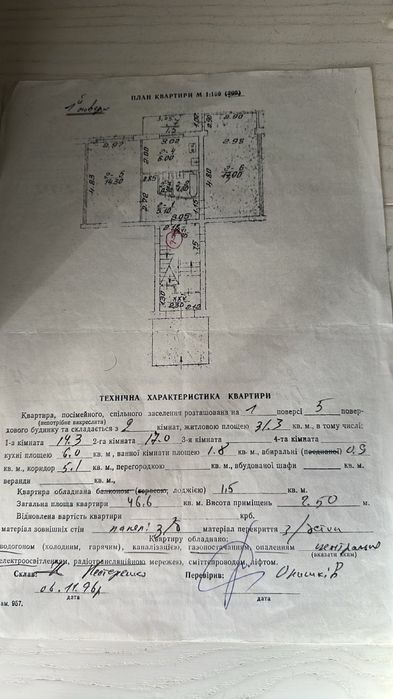 1й поверх
ПЛАН КВАРТИРИ М 1:100 (200)
3.45
1.00
0.90
2.90
1.5
2.97
3.02
2.98
2.00
4
6.00
4.83
14.30
2.85
4.80
17.00
2.72
5.10
1.15
3.05
ТЕХНІЧНА ХАРАКТЕРИСТИКА КВАРТИРИ
Квартира, посімейного, спільного заселення розташована на 1 поверсі 5 повер-
(непотрібне викреслити)
хового будинку та складається з 2 кімнат, житловою площею 31.3 кв. м, в тому числі:
1-а кімната 14.3 2-га кімната 17.0 3-я кімната 4-та кімната
кухні площею 6.0 кв. м, ванної кімнати площею 1.8 кв. м, вбиральні (поєднаної) 0.9
кв. м, коридор 5.1 кв. м, перегородкою кв. м, вбудованої шафи кв. м,
веранди кв. м,
Квартира обладнана балконом (верандою, лоджією) 1.5 кв. м.
Загальна площа квартири 46.6 кв. м. Висота приміщень 2.50 м.
Відновлена вартість квартири крб.
матеріал зовнішніх стін панелі з/б матеріал перекриття з/бетон
Квартиру обладнано:
водогоном (холодним, гарячим), каналізацією, газопостачанням, опаленням центральне
(вказати яким)
електроосвітленням, радіотрансляційною мережею, сміттєпроводом, ліфтом.
Склав: Нестеренко Перевірив:
06.11.96р
дата дата
ам. 957.